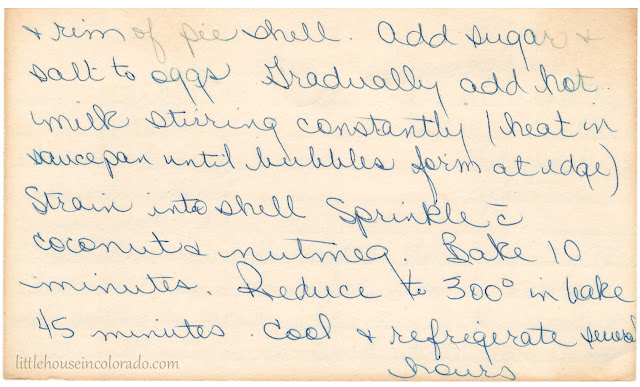 & rim of pie shell. Add sugar &
salt to eggs Gradually add hot
milk stirring constantly (heat in
saucepan until bubbles form at edge)
Strain into shell Sprinkle c̄
coconut & nutmeg. Bake 10
minutes. Reduce to 300° in bake
45 minutes. Cool & refrigerate several
hours
littlehouseincolorado.com